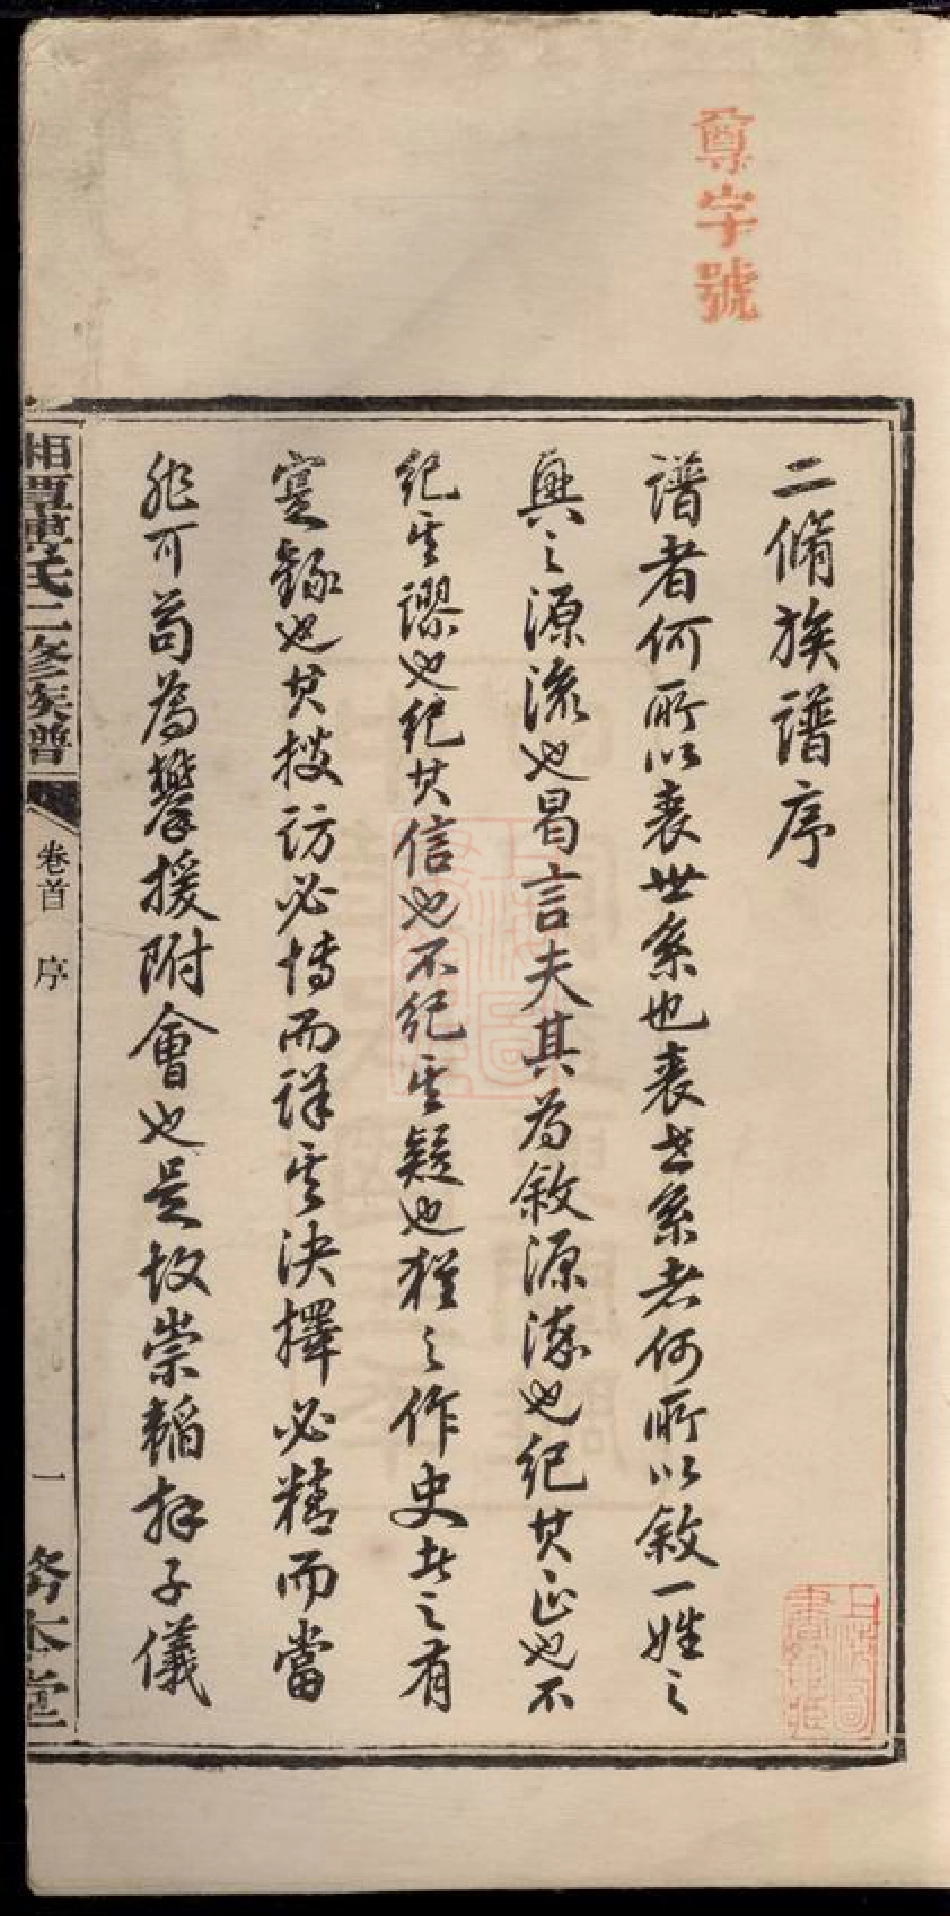 尊字號
二脩族譜序
譜者何所以表世系也表世系者何所以敘一姓之
興之源流也曷言夫其為敘源流也紀其正也不
紀其謬也紀其信也不紀其疑也猶之作史者之有
實錄也其搜訪必博而詳其決擇必精而當
非可苟為攀援附會也是故崇韜拜子儀
氏二修族譜
卷首
序
一
務本堂